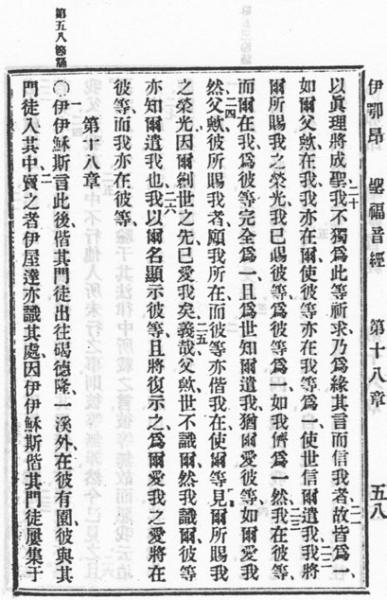 伊鄂昂 聖福音經 第十八章 五八
以眞理將成聖二十我不獨爲此等祈求乃爲緣其言而信我者二一故皆爲一
如爾父歟在我我亦在爾使彼等亦在我等爲一使世信爾遣我二二我將
爾所賜我之榮光我已賜彼等爲彼等爲一如我儕爲一二三然我在彼等
而爾在我爲彼等完全爲一且爲世知爾遣我猶爾愛彼等如爾愛我
二四然父歟彼所賜我者願我所在而彼等亦偕我在使爾等見爾所賜我
之榮光因爾創世之先已愛我矣二五義哉父歟世不識爾然我識爾彼等
亦知爾遣我也二六我以爾名顯示彼等且將復示之爲爾愛我之愛將在
彼等而我亦在彼等
第十八章
一伊伊穌斯言此後偕其門徒出往碣德隆一溪外在彼有園彼與其
門徒入其中二賣之者伊屋達亦識其處因伊伊穌斯偕其門徒屢集于
第五八